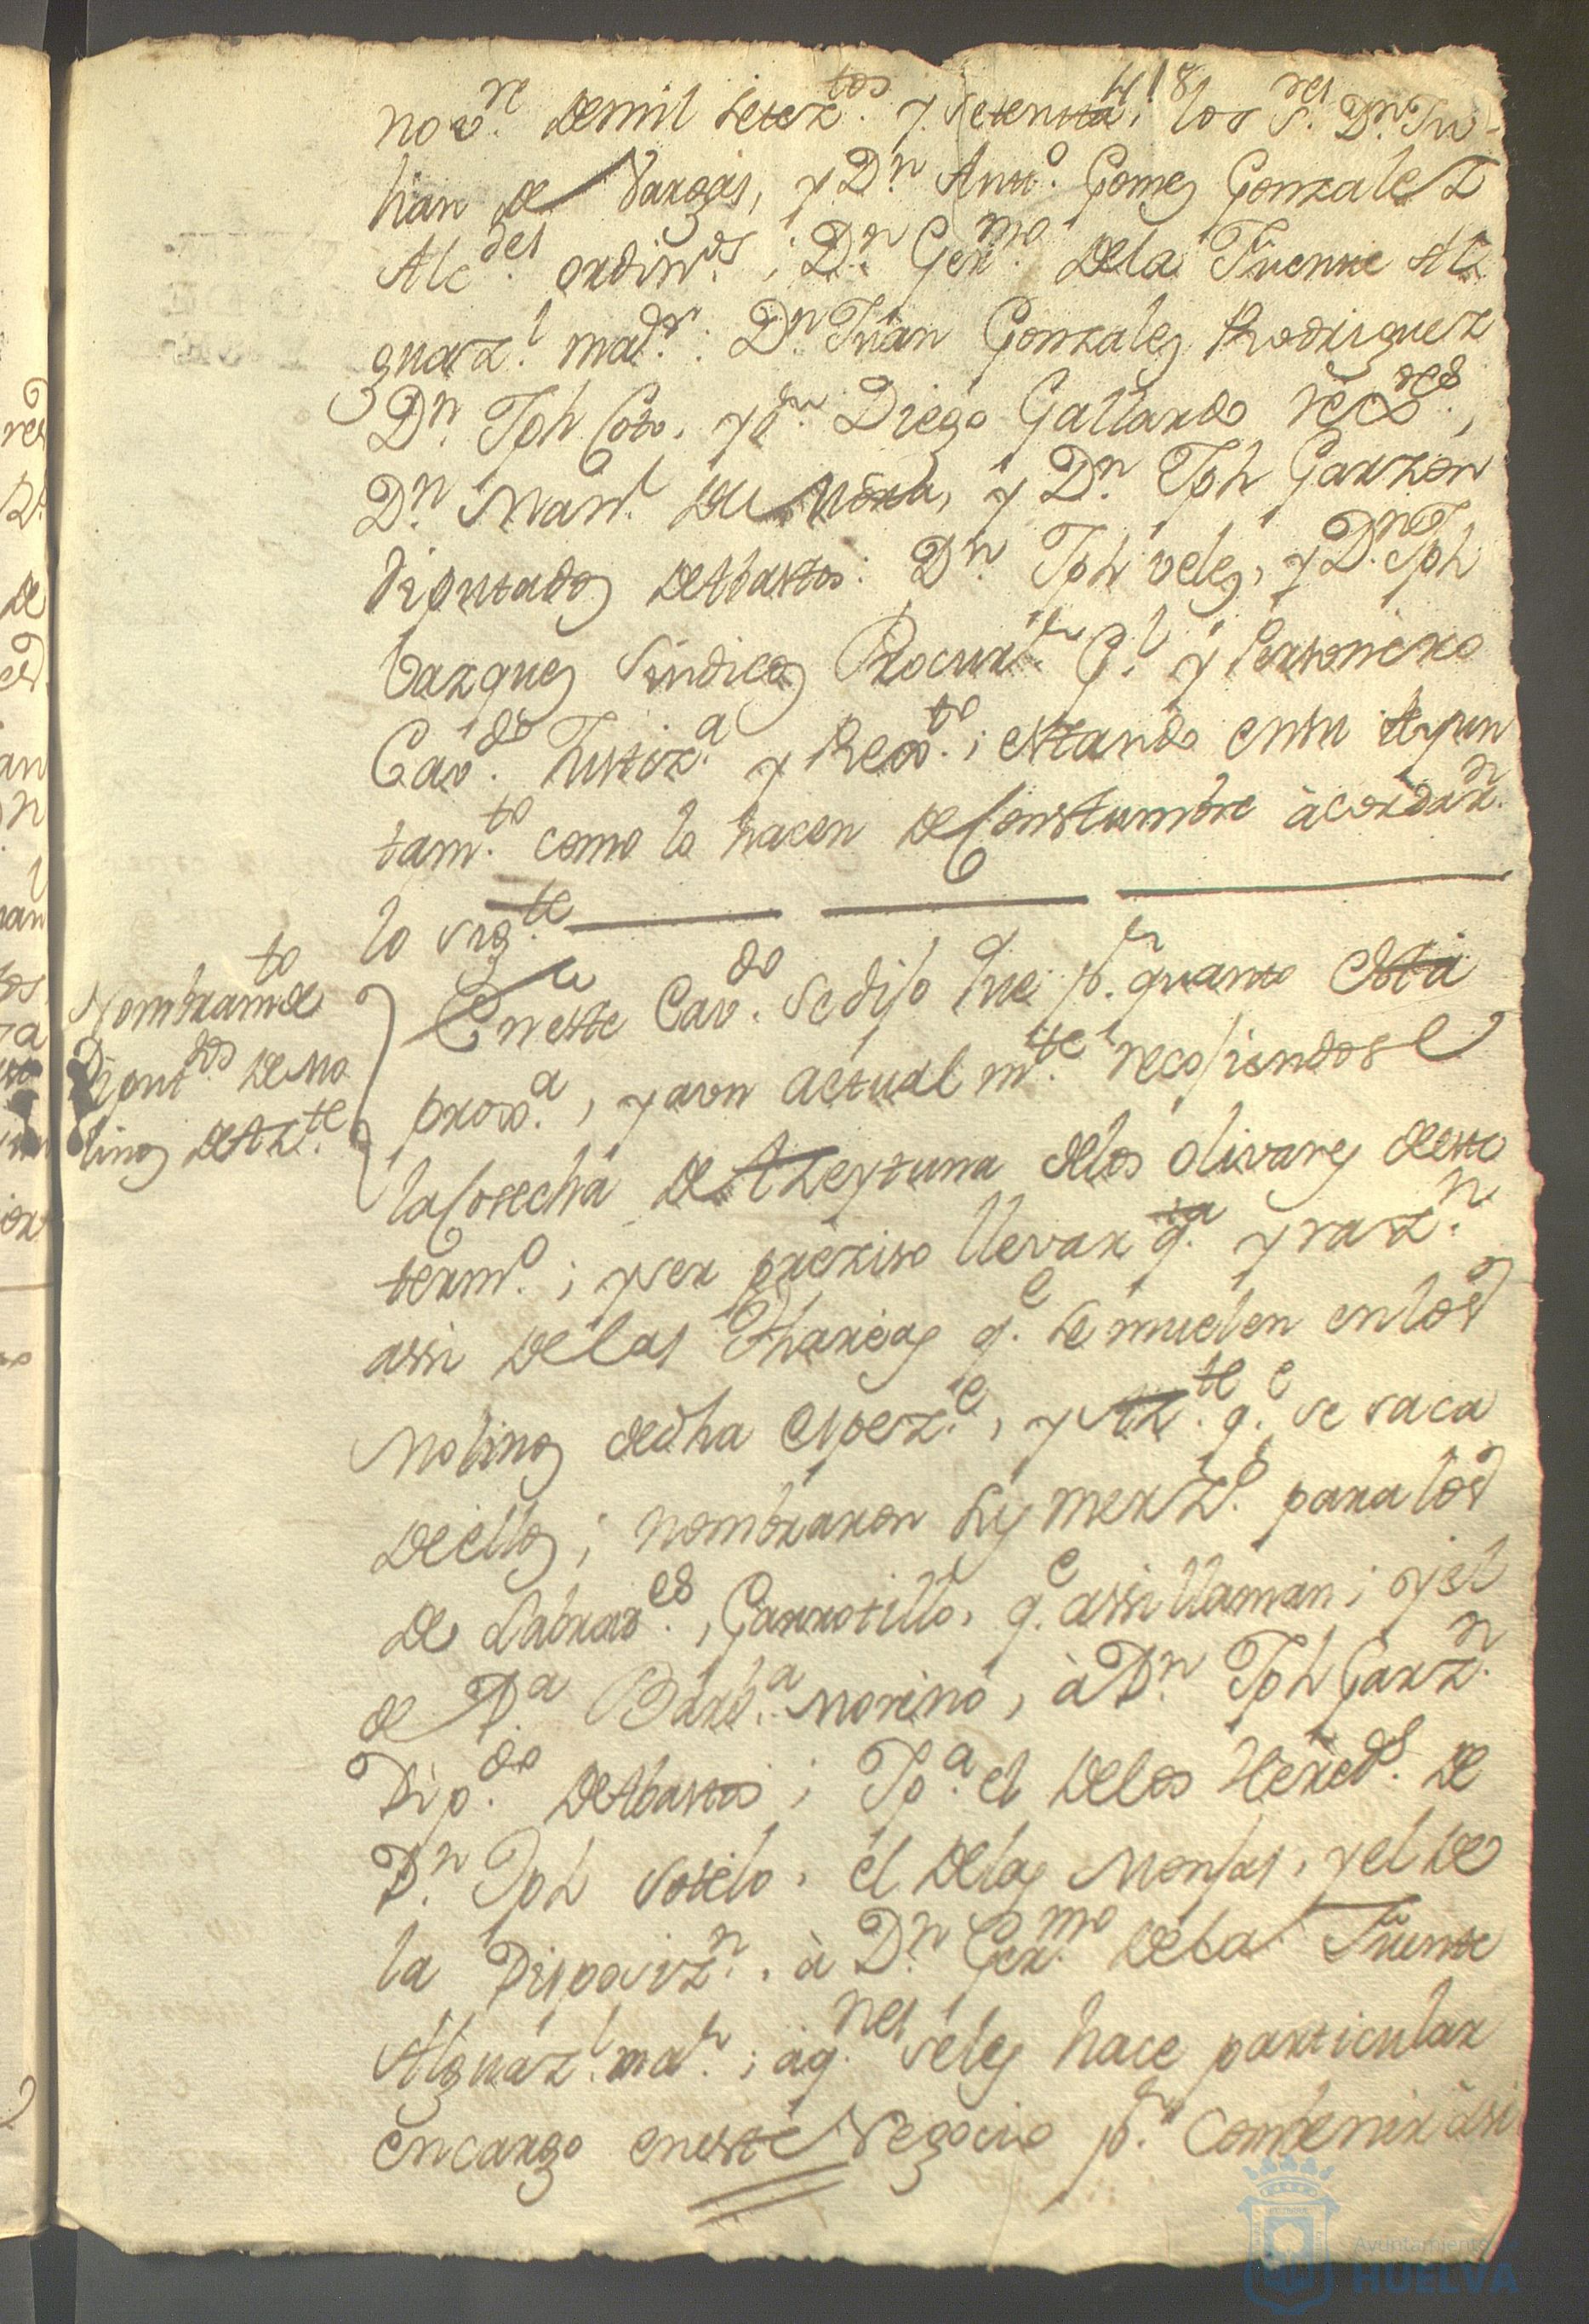 418
nov.re de mil setez.tos y setenta; los S.res D.n Ju-
lian de Vargas, y D.n Ant.o Gomez Gonzalez
Alc.des ordin.os; D.n Ger.mo dela Fuente Al
guaz.l ma.or: D.n Juan Gonzalez Rodriguez
D.n Jph Coto, y d.n Diego Gallardo rex.res,
D.n Man.l de Mora, y D.n Jph Garzon
diputados de Abastos: D.n Jph velez, y D.n Jph
Bazquez Sindicos Procur.r G.l y Personero
Cav.do Justiz.a y Rex.to; estando en su Ayun
tam.to como lo hacen de Constumbre àcordar.n
lo sig.te
Nombram.to de
Diput.dos de Mo
linos de Az.te
En este Cav.do se dijo Que p.r quanto está
prox.a, y aun actualm.te recojiendose
la Cosecha de Azeytuna delos olivares deste
term.o; y ser preziso llevar q.ta y raz.n
assi de las thareas q.e se muelen en los
Molinos de dha espez.e, y Az.te q.e se saca
de ellos; nombraron sus merz.s para los
de Labrad.es, Garrotillo, q.e assi llaman; y el
de D.a Barb.a Morino, à D.n Jph Garz.n
Dip.do de Abastos; Jp.a el delos Hered.s de
D.n Jph Sotelo, el delas Monjas, y el de
la Disposiz.n, à D.n Ger.mo dela Fuente
Alguaz.l ma.r; àq.nes seles hace particular
encargo en este Negocio p.r Combenir àsi
Ayuntamiento de
HUELVA